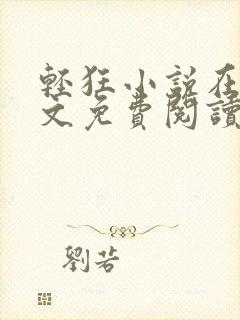 輕狂小說在
文免費閱讀
劉芸